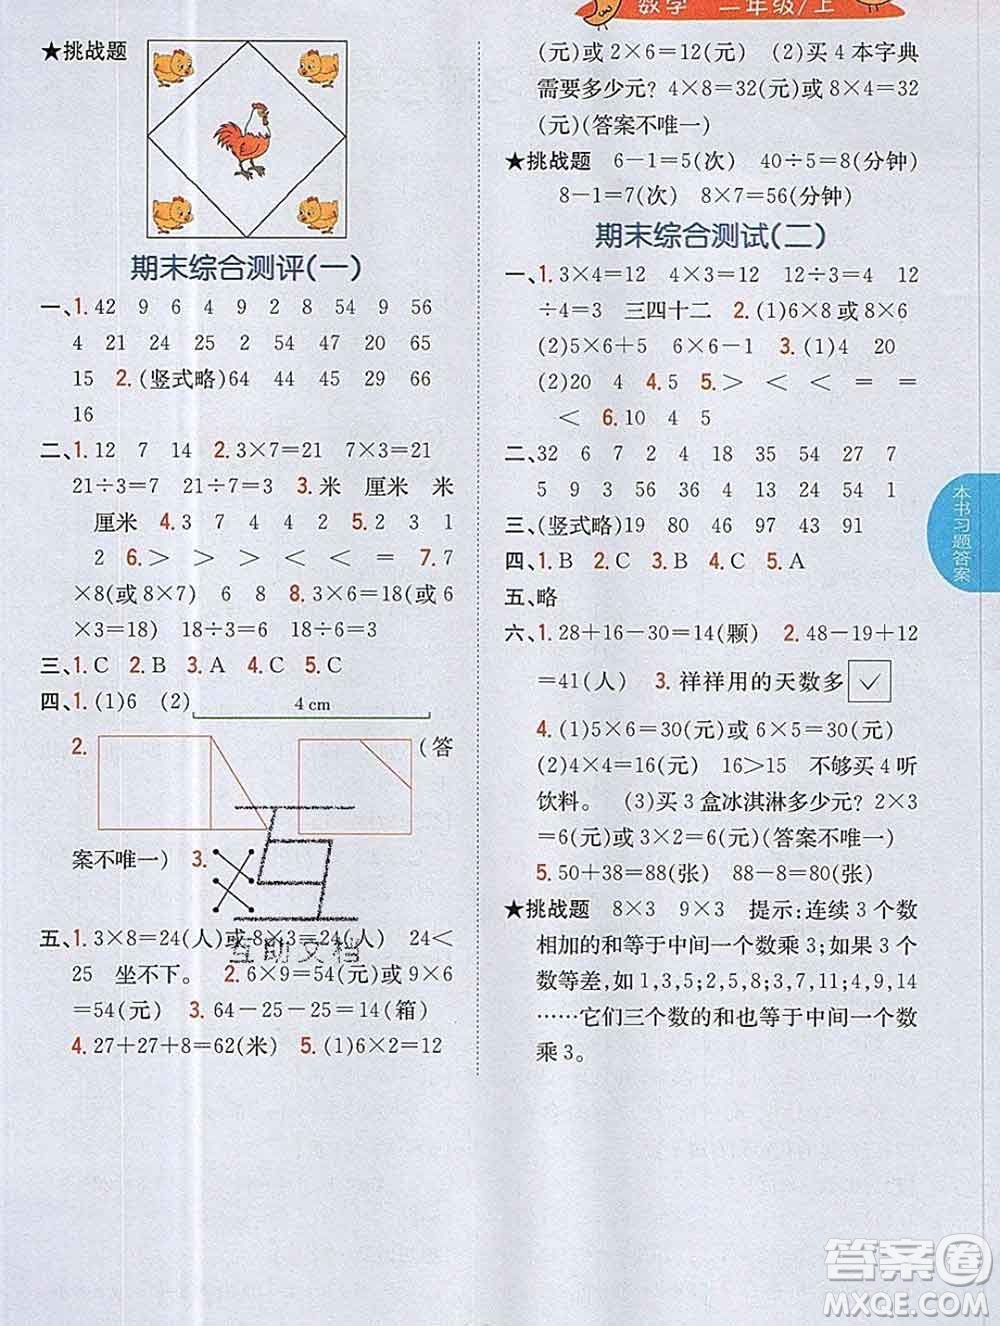 数学 二年级/上
★挑战题
期末综合测评(一)
一、1.42 9 6 4 9 2 8 54 9 56
4 21 24 25 2 54 20 20 65
15 2.(竖式略)64 44 45 29 66
16
二、1.12 7 14 2.3×7=21 7×3=21
21÷3=7 21÷7=3 3.米 厘米 米
厘米 4.3 7 9 4 5.2 3 1
2 6.> > > > = 7.7
×8(或 8×7) 6×6 3×6(或 6
×3=18) 18÷3=6 18÷6=3
三、1.C 2.B 3.A 4.C 5.C
四、1.(1)6 (2) 4 cm
2. (答
案不唯一) 3.
五、1.3×8=24(人)或 8×3=24(人) 24<
25 坐不下。 2.6×9=54(元)或 9×6
=54(元) 3.64-25-25=14(箱)
4.27+27+8=62(米) 5.(1)6×2=12
(元)或 2×6=12(元) (2)买 4 本字典
需要多少元? 4×8=32(元)或 8×4=32
(元)(答案不唯一)
★挑战题 6-1=5(次) 40÷5=8(分钟)
8-1=7(次) 8×7=56(分钟)
期末综合测试(二)
一、1.3×4=12 4×3=12 12÷3=4 12
÷4=3 三四十二 2.(1)6×8 或 8×6
(2)5×6+5 4×8-4 3.(1)4 20
(2)20 4 4.5 5.> < < = =
< 6.10 4 5
二、32 6 7 2 4 35 54 27 7
5 9 13 36 24 58 7 54 1
三、(竖式略)19 80 46 97 43 91
四、1.B 2.B 3.C 4.C 5.A
五、略
六、1.28+16-30=14(颗) 2.48-19+12
=41(人) 3.祥祥用的天数多 ✓
4.(1)5×6=30(元)或 6×5=30(元)
(2)4×4=16(元) 16>15 不够买 4 听
饮料。 (3)买 3 盒冰淇淋多少元? 2×3
=6(元)或 3×2=6(元)(答案不唯一)
5.50+38=88(张) 88-8=80(张)
★挑战题 8×3 9×3 提示:连续 3 个数
相加的和等于中间一个数乘 3;如果 3 个
数等差,如 1,3,5;2,5,8;3,6,9;4,9,14
……它们三个数的和也等于中间一个数
乘 3。
本书习题答案
互助文档
答案圈
MXQE.COM